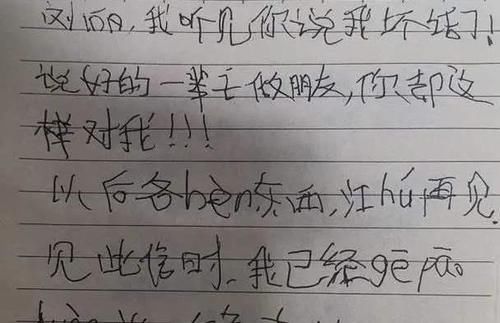 刘洒,我听见你说我坏话了!
说好的一辈子做朋友,你却这
样对我!!!
以后各bèn东西,江hú再见.
见此信时,我已经gē pāo